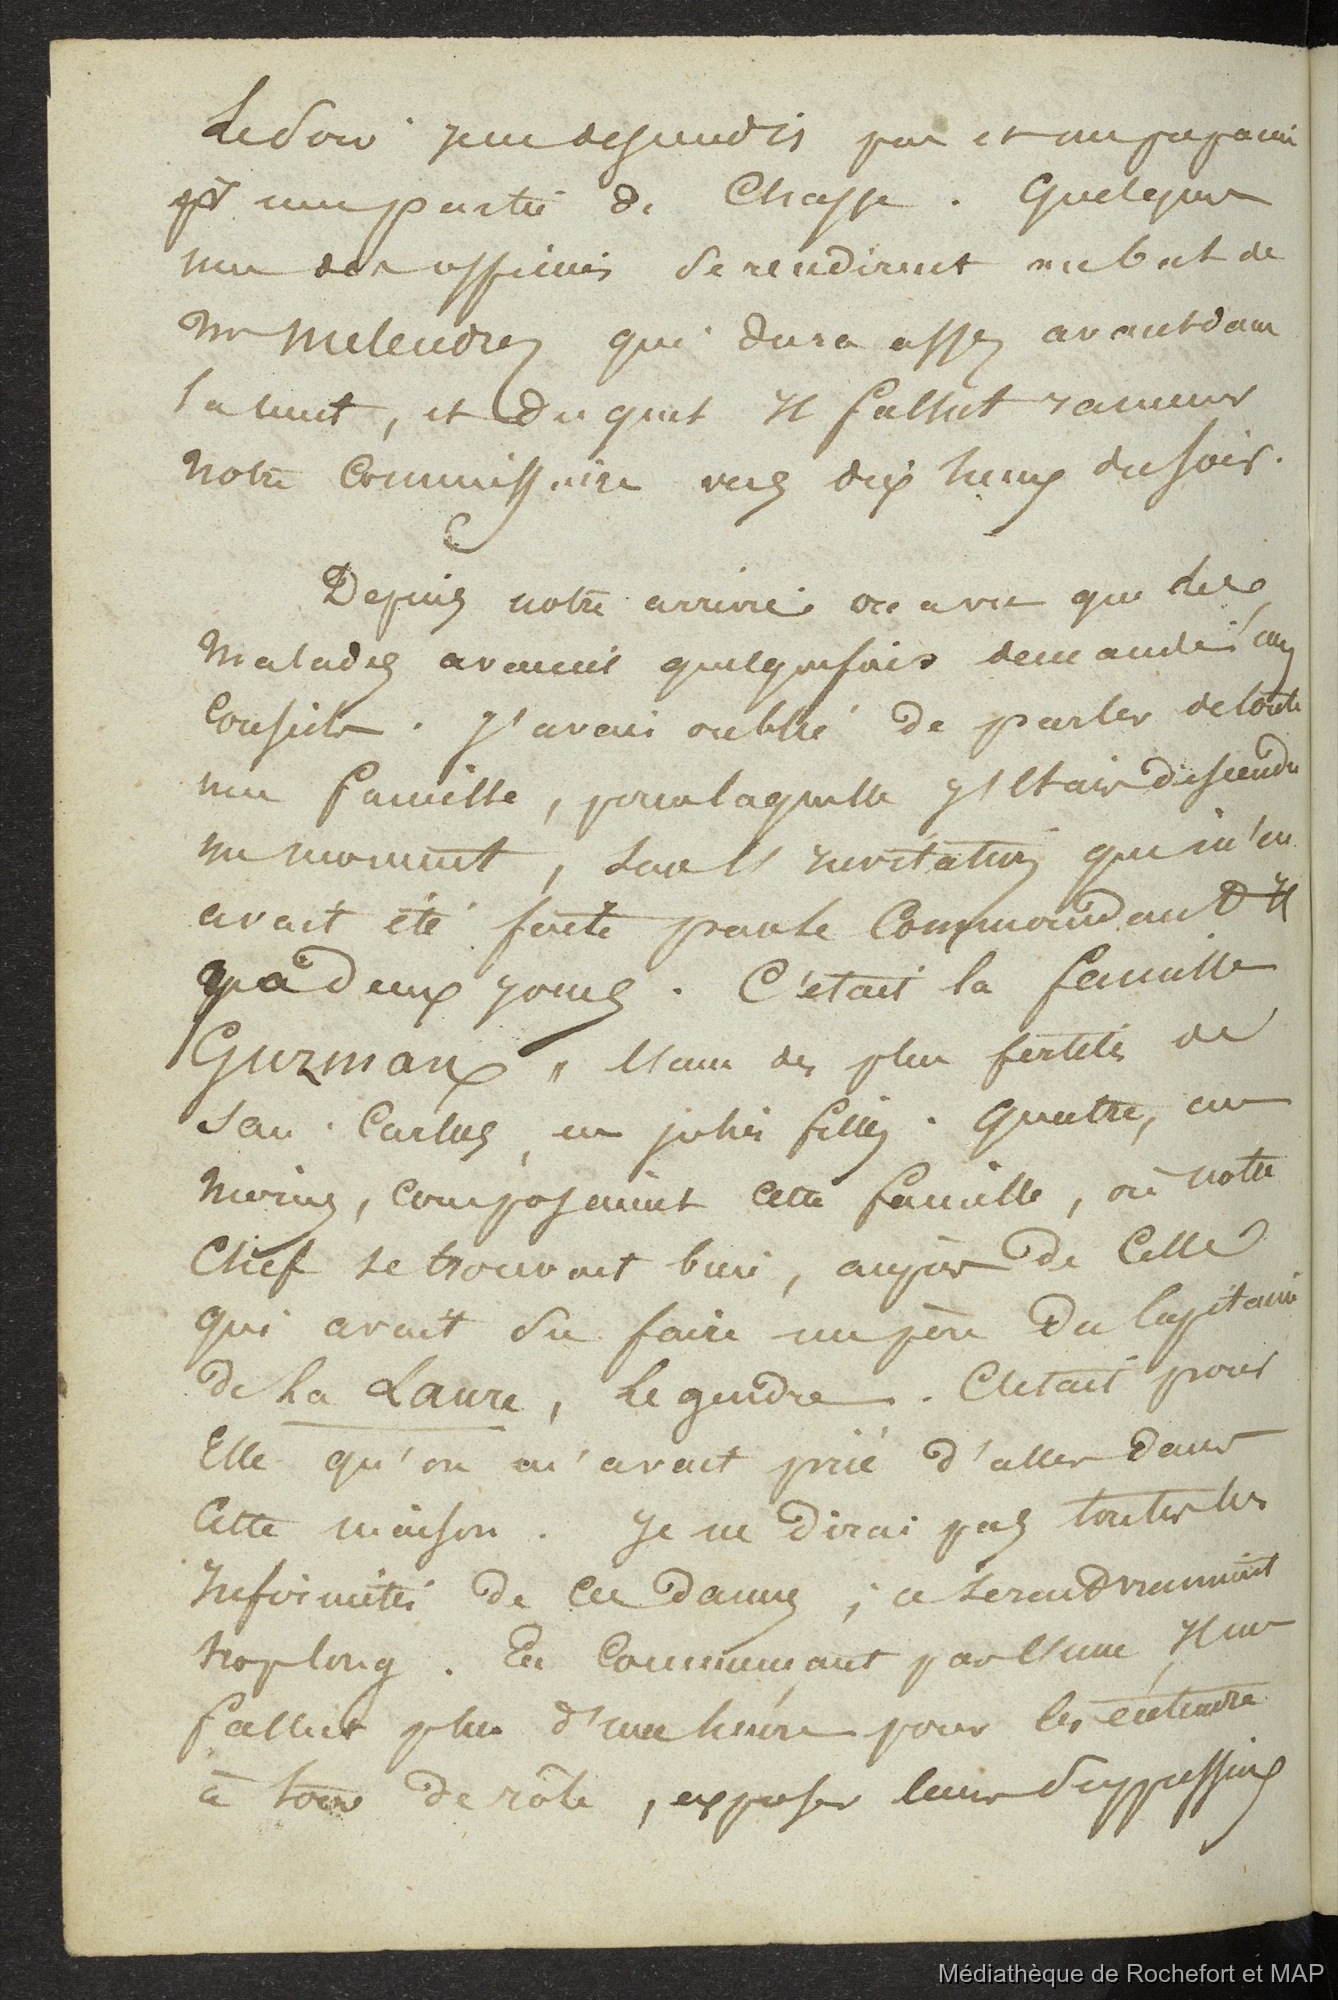 Le soir je ne descendis pas et me préparai
à une partie de Chasse. Quelques
uns des officiers se rendirent au bal de
Mr Melendrez qui dura assez avant dans
la nuit, et duquel Il fallut ramener
notre Commissaire vers dix heures du soir.
Depuis notre arrivée on a vu que des
Malades avaient quelquefois demandé mes
Conseils. J'avais oublié de parler de toute
une famille, pour laquelle J'étais descendu
un moment, sur l'Invitation qui m'en
avait été faite par le Commandant Il
y a deux jours. C'était la famille
Guzman, l'une des plus fertiles de
San. Carlos, en jolies filles. Quatre, au
Moins, composaient cette famille, où notre
Chef se trouvait bien, auprès de Celle
qui avait du faire un père du Capitaine
de La Laure, Legendre. C'était pour
Elle qu'on m'avait prié d'aller dans
Cette maison. Je ne dirai pas toutes les
Infirmités de ces dames ; ce serait vraiment
trop long. En Commençant par l'une, Il me
fallut plus d'une heure pour les entendre
à tour de rôle, exposer leurs suppressions
Médiathèque de Rochefort et MAP